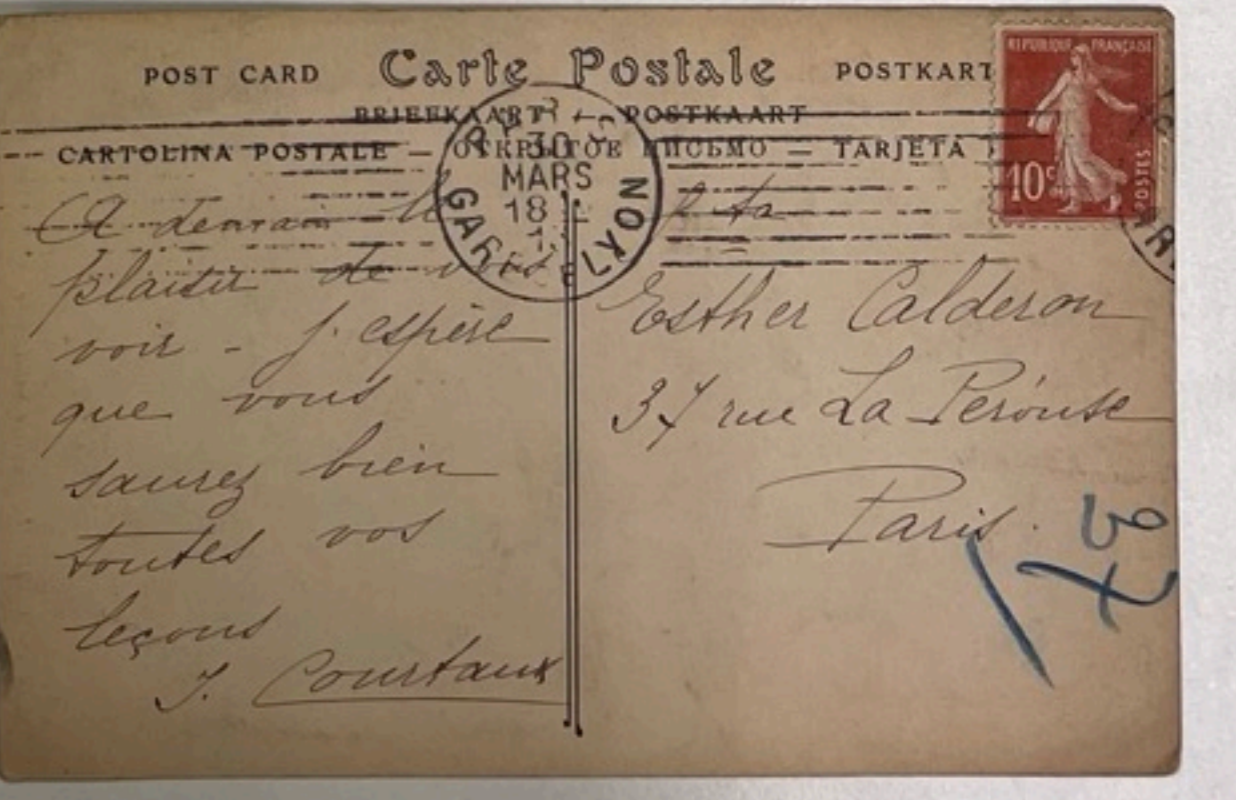 POST CARD Carte Postale POSTKART
BRIEFKAART — POSTKAART
CARTOLINA POSTALE — ОТКРЫТОЕ ПИСЬМО — TARJETA
REPUBLIQUE FRANÇAISE
10c
POSTES
30
MARS
18
GARE DU NORD
A demain le
plaisir de vous
voir - j'espère
que vous
saurez bien
toutes vos
leçons
J. Courtaux
Esther Calderon
37 rue La Pérouse
Paris.
37